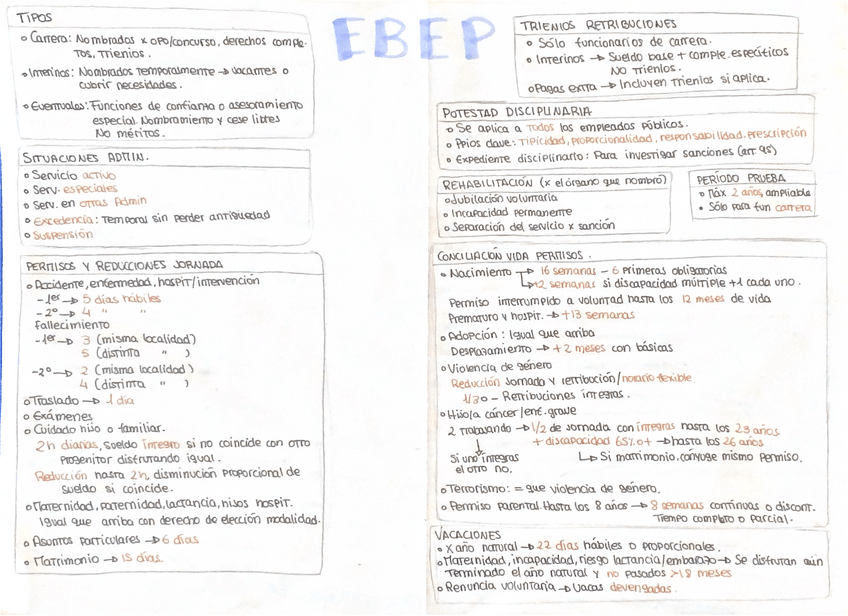 EBEP
TIPOS
Carrera: Nombrados x opo/concurso, derechos comple-
tos, trienios.
Interinos: Nombrados temporalmente → vacantes o
cubrir necesidades.
Eventuales: Funciones de confianza o asesoramiento
especial. Nombramiento y cese libres
No méritos.
SITUACIONES ADMIN.
Servicio activo
Serv. especiales
Serv. en otras Admin
Excedencia: Temporal sin perder antigüedad
Suspensión
PERMISOS Y REDUCCIONES JORNADA
Accidente, enfermedad, hospit/intervención
-1er → 5 días hábiles
-2º → 4 " "
Fallecimiento
-1er → 3 (misma localidad)
5 (distinta " )
-2º → 2 (misma localidad)
4 (distinta " )
Traslado → 1 día
Exámenes
Cuidado hijo o familiar.
2h diarias, sueldo íntegro si no coincide con otro
progenitor disfrutando igual.
Reducción hasta 2h, disminución proporcional de
sueldo si coincide.
Maternidad, paternidad, lactancia, hijos hospit.
Igual que arriba con derecho de elección modalidad.
Asuntos particulares → 6 días
Matrimonio → 15 días.
TRIENIOS RETRIBUCIONES
Sólo funcionarios de carrera.
Interinos → Sueldo base + comple. específicos
NO Trienios.
Pagas extra → Incluyen trienios si aplica.
POTESTAD DISCIPLINARIA
Se aplica a todos los empleados públicos.
Ppios clave: Tipicidad, proporcionalidad, responsabilidad. prescripción
Expediente disciplinario: Para investigar sanciones (art 95)
REHABILITACIÓN (x el órgano que nombró)
Jubilación voluntaria
Incapacidad permanente
Separación del servicio x sanción
PERÍODO PRUEBA
Máx 2 años, ampliable
Sólo para fun carrera
CONCILIACIÓN VIDA PERMISOS.
Nacimiento → 16 semanas - 6 primeras obligatorias
→ +2 semanas si discapacidad múltiple +1 cada uno.
Permiso interrumpido a voluntad hasta los 12 meses de vida
Prematuro y hospit. → +13 semanas
Adopción: Igual que arriba
Desplazamiento → +2 meses con básicas
Violencia de género
Reducción Jornada y retribución/horario flexible
1/3 o - Retribuciones íntegras.
Hijo/a cáncer/enf. grave
2 trabajando → 1/2 de jornada con íntegras hasta los 23 años
+ discapacidad 65% o + → hasta los 26 años
Si uno íntegras
el otro no.
↳ Si matrimonio, cónyuge mismo permiso.
Terrorismo: = que violencia de género.
Permiso parental. Hasta los 8 años → 8 semanas continuas o discont.
Tiempo completo o parcial.
VACACIONES
X año natural → 22 días hábiles o proporcionales.
Maternidad, incapacidad, riesgo lactancia/embarazo → Se disfrutan aún
terminado el año natural y no pasados >18 meses
Renuncia voluntaria → Vacas devengadas.